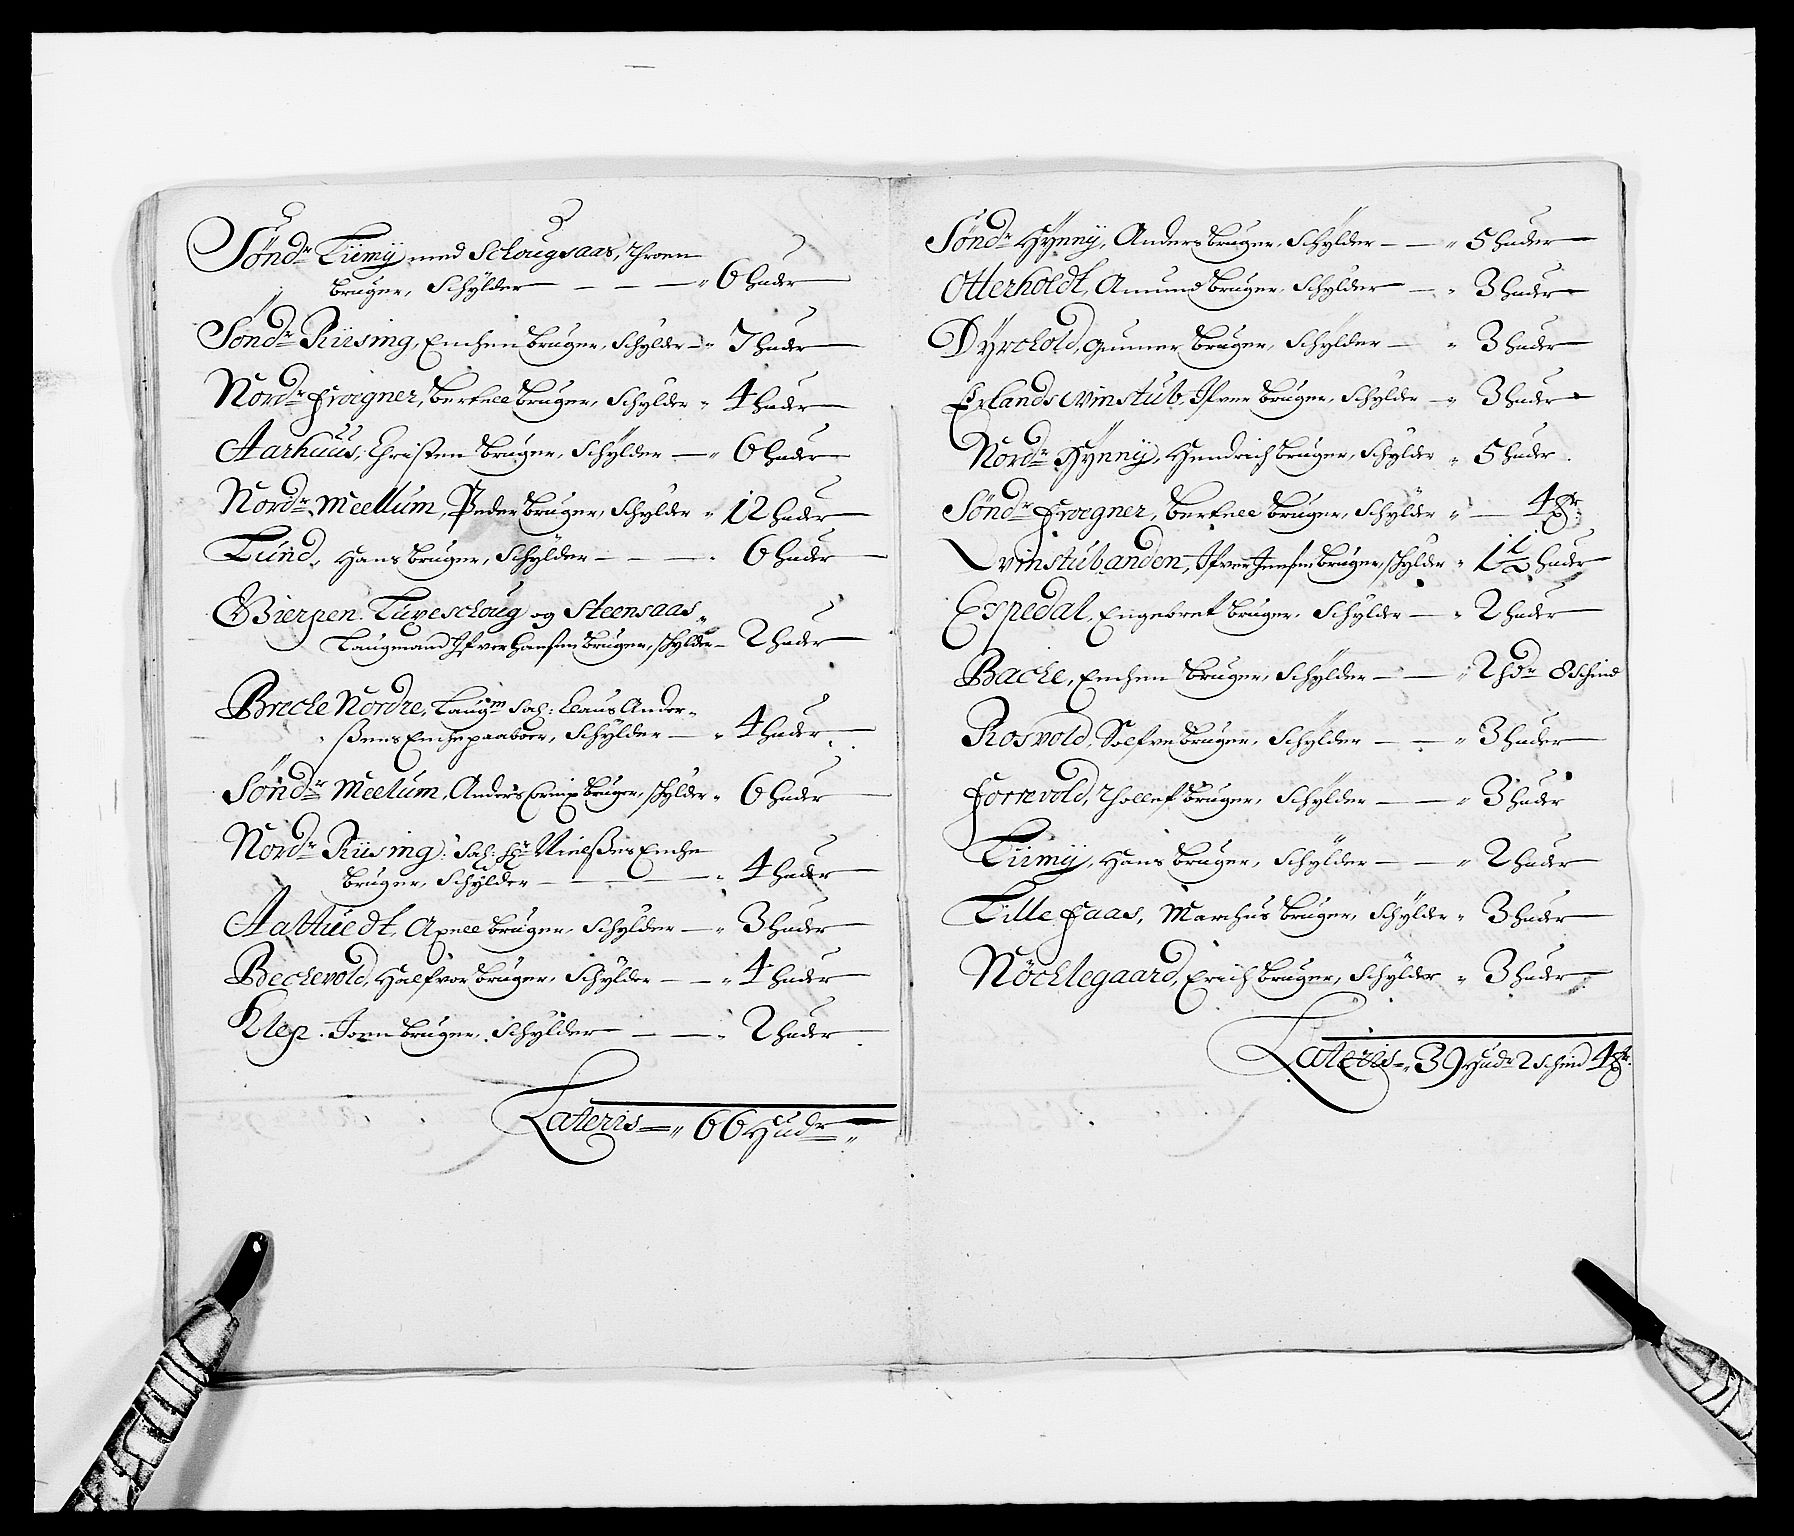 Söndr Tiemÿ med Schougsaas, Throen
bruger, Schÿlder — — — „ 6 huder
Söndr Riising, Enchen bruger, Schÿlder — „ 7 huder
Nordr Frogner, Berkell bruger, Schÿlder „ 4 huder
Aarhuus, Christen bruger, Schÿlder — „ 6 huder
Nordr Meellum, Peder bruger, Schÿlder „ 12 huder
Lund, Hans bruger, Schÿlder — — — „ 6 huder
Bierpen Luxeschoug og Steensaas„
Laugmand Ifver Hansen bruger, schÿlder — 2 huder
Breche Nordre, Laugm Sal: Claus Ander-
ßens Enche paaboer, Schÿlder — „ 4 huder
Söndr Meelum, Anders bruger, schÿlder „ 6 huder
Nordr Riising: Sal: Hr Nielßes Enche
bruger, Schÿlder — — — „ 4 huder
Aaltuedt, Axell bruger, Schÿlder — „ 3 huder
Bechevold, Halfvor bruger, Schÿlder — — „ 4 huder
Klep. Joen bruger, Schÿlder — — „ 2 huder
Lateris — „ 66 Hudr „
Söndr Hÿnnÿ, Anders bruger, Schÿlder — — „ 5 huder
Otterholdt, Amund bruger, Schÿlder — „ 3 huder
Dÿrchold, Gunner bruger, Schÿlder — „ 3 huder
Erlands Qvinstub, Ifver bruger, Schÿlder — „ 3 huder
Nordr Hÿnnÿ, Hendrich bruger, Schÿlder „ 5 huder
Söndr Frogner, Berkell bruger, Schÿlder „ — 4
Qvinstubanden, Ifver Jensen bruger, schÿlder „ 1½ huder
Espedal, Engebret bruger, Schÿlder — „ 2 huder
Bache, Enchen bruger, Schÿlder — — „ 2 hdr 8 schind
Rosvold, Solfve bruger, Schÿlder — — „ 3 huder
Forrevold, Thollef bruger, Schÿlder — — „ 3 huder
Tiimÿ, Hans bruger, Schÿlder — — „ 2 huder
Lille Faas, Marchus bruger, Schÿlder „ 3 huder
Nöchlegaard, Erich bruger, Schÿlder „ 3 huder
Lateris — „ 39 Hudr 2 schind 4